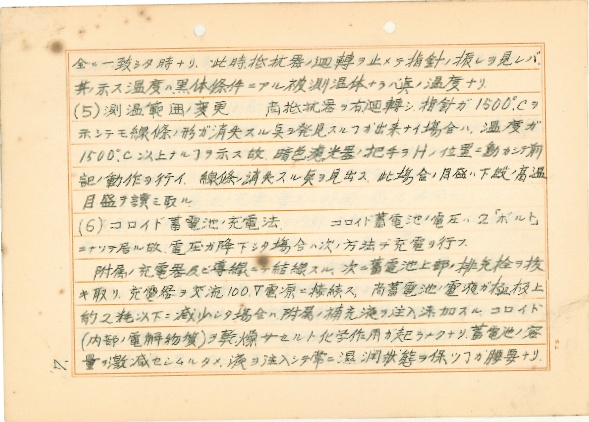 全ク一致シタ時ナリ、此時抵抗器ノ廻轉ヲ止メテ指針ノ振レヲ見レバ
其ノ示ス温度ハ黒体條件ニアル被測温体ナラバ眞ノ温度ナリ
(5) 測温範囲ノ変更 尚抵抗器ヲ右廻轉シ指針ガ1500°Cヲ
示シテモ線條ノ形ガ消失スル点ヲ発見スル事ガ出来ナイ場合ハ、温度ガ
1500°C以上ナル事ヲ示ス故、暗色濾光器ノ把手ヲHノ位置ニ動カシテ前
記ノ動作ヲ行イ、線條ノ消失スル点ヲ見出ス、此場合ノ目盛ハ下段ノ高温
目盛ヲ讀ミ取ル
(6) コロイド蓄電池ノ充電法、 コロイド蓄電池ノ電圧ハ2「ボルト」
ニナツテ居ル故、電圧ガ降下シタ場合ハ次ノ方法デ充電ヲ行フ
附属ノ充電器及ビ導線ニテ結線スル、次ニ蓄電池上部ノ排気栓ヲ抜
キ取リ、充電器ヲ交流100V電源ニ接続ス、尚蓄電池ノ電液ガ極板上
約2粍以下ニ減少シタ場合ハ附属ノ補充液ヲ注入添加スル、コロイド
(内部ノ電解物質)ヲ乾燥サセルト化学作用ガ起ラナクナリ、蓄電池ノ容
量ヲ激減セシムルタメ、液ヲ注入シテ常ニ湿潤状態ヲ保ツ事ガ肝要ナリ、